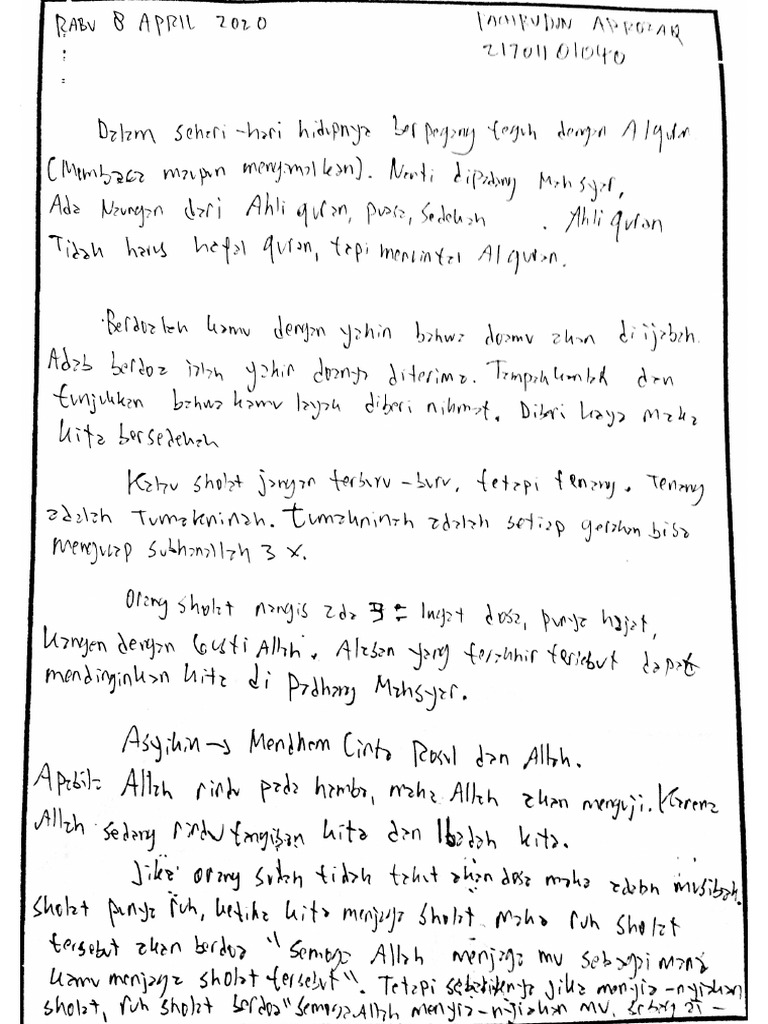 RABU 8 APRIL 2020
21701101040
Dalam sehari-hari hidupnya berpegang teguh dengan Alquran
(Membaca maupun mengamalkan). Nanti dipadang Mahsyar,
Ada Naungan dari Ahli quran, puasa, sedekah . Ahli quran
Tidak harus hafal quran, tapi mencintai Alquran.
Berdoalah kamu dengan yakin bahwa doamu akan diijabah.
Adab berdoa ialah yakin doanya diterima. Tampakkanlah dan
tunjukkan bahwa kamu layak diberi nikmat. Diberi kaya maka
kita bersedekah
Kalau sholat jangan terburu-buru, tetapi tenang. Tenang
adalah Tumakninah. tumakninah adalah setiap gerakan bisa
mengucap subhanallah 3 x.
Orang sholat nangis ada 3 = Ingat dosa, punya hajat,
kangen dengan Gusti Allah. Alasan yang terakhir tersebut dapat
mendinginkan kita di Padhang Mahsyar.
Asyikin → Mendhem Cinta Rosul dan Allah.
Apabila Allah rindu pada hamba, maka Allah akan menguji. Karena
Allah sedang rindu tangisan kita dan Ibadah kita.
Jika orang sudah tidak takut akan dosa maka adalah musibah.
Sholat punya ruh, ketika kita menjaga sholat maka ruh sholat
tersebut akan berdoa "Semoga Allah menjaga mu sebagai mana
kamu menjaga sholat tersebut". Tetapi sebaliknya jika menyia-nyiakan
sholat, ruh sholat berdoa "semoga Allah menyia-nyiakan mu, sebagai-